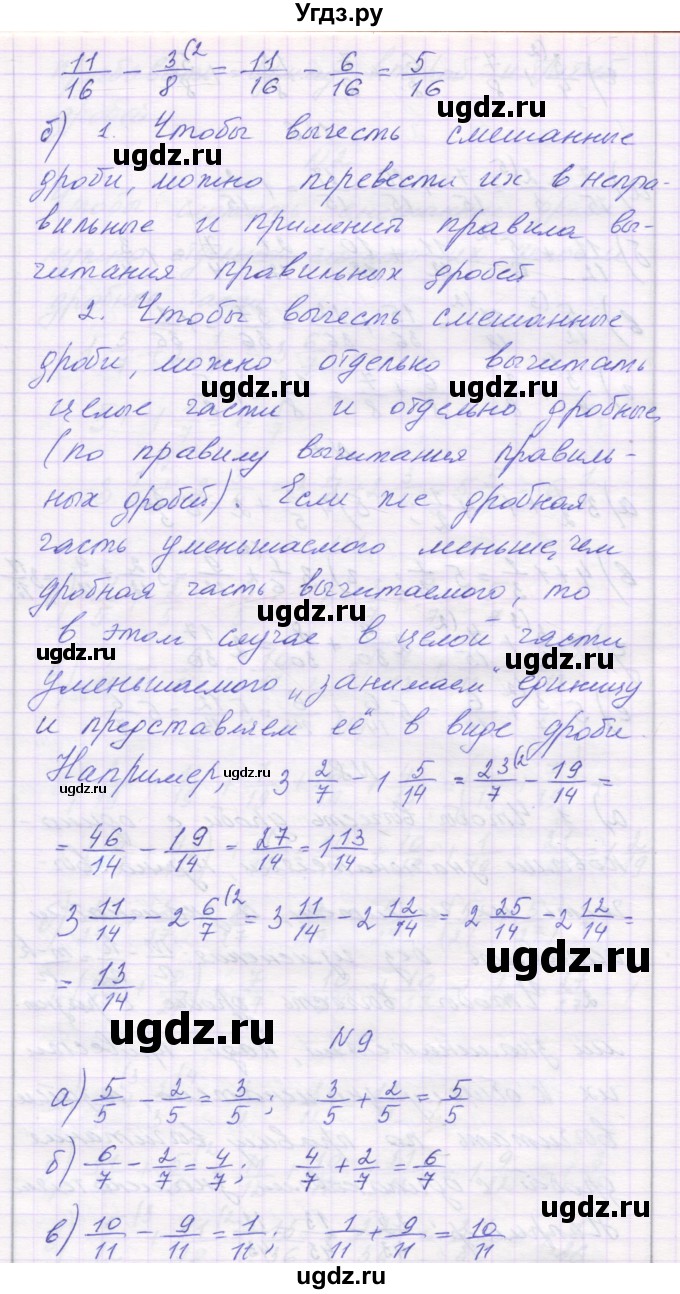 Угдз.ру
11/16 - 3/8 (2 = 11/16 - 6/16 = 5/16
ugdz.ru
б) 1. Чтобы вычесть смешанные
ugdz.ru
дроби, можно перевести их в непра-
вильные и применить правила вы-
читания правильных дробей
2. Чтобы вычесть смешанные
дроби, можно отдельно вычитать
ugdz.ru
целые части и отдельно дробные,
(по правилу вычитания правиль-
ных дробей). Если же дробная
часть уменьшаемого меньше, чем
дробная часть вычитаемого, то
ugdz.ru
в этом случае в целой части
ugdz.ru ugdz.ru
уменьшаемого "занимаем" единицу
и представляем её в виде дроби.
Например, ugdz.ru 3 2/7 - 1 5/14 = 23/7 (2 - 19/14 =
= 46/14 - 19/14 = 27/14 = 1 13/14
3 11/14 - 2 6/7 (2 = 3 11/14 - 2 12/14 = 2 25/14 - 2 12/14 =
ugdz.ru
= 13/14
ugdz.ru
N 9
а) 5/5 - 2/5 = 3/5; 3/5 + 2/5 = 5/5
ugdz.ru
б) 6/7 - 2/7 = 4/7; 4/7 + 2/7 = 6/7
ugdz.ru
в) 10/11 - 9/11 = 1/11; 1/11 + 9/11 = 10/11
ugdz.ru